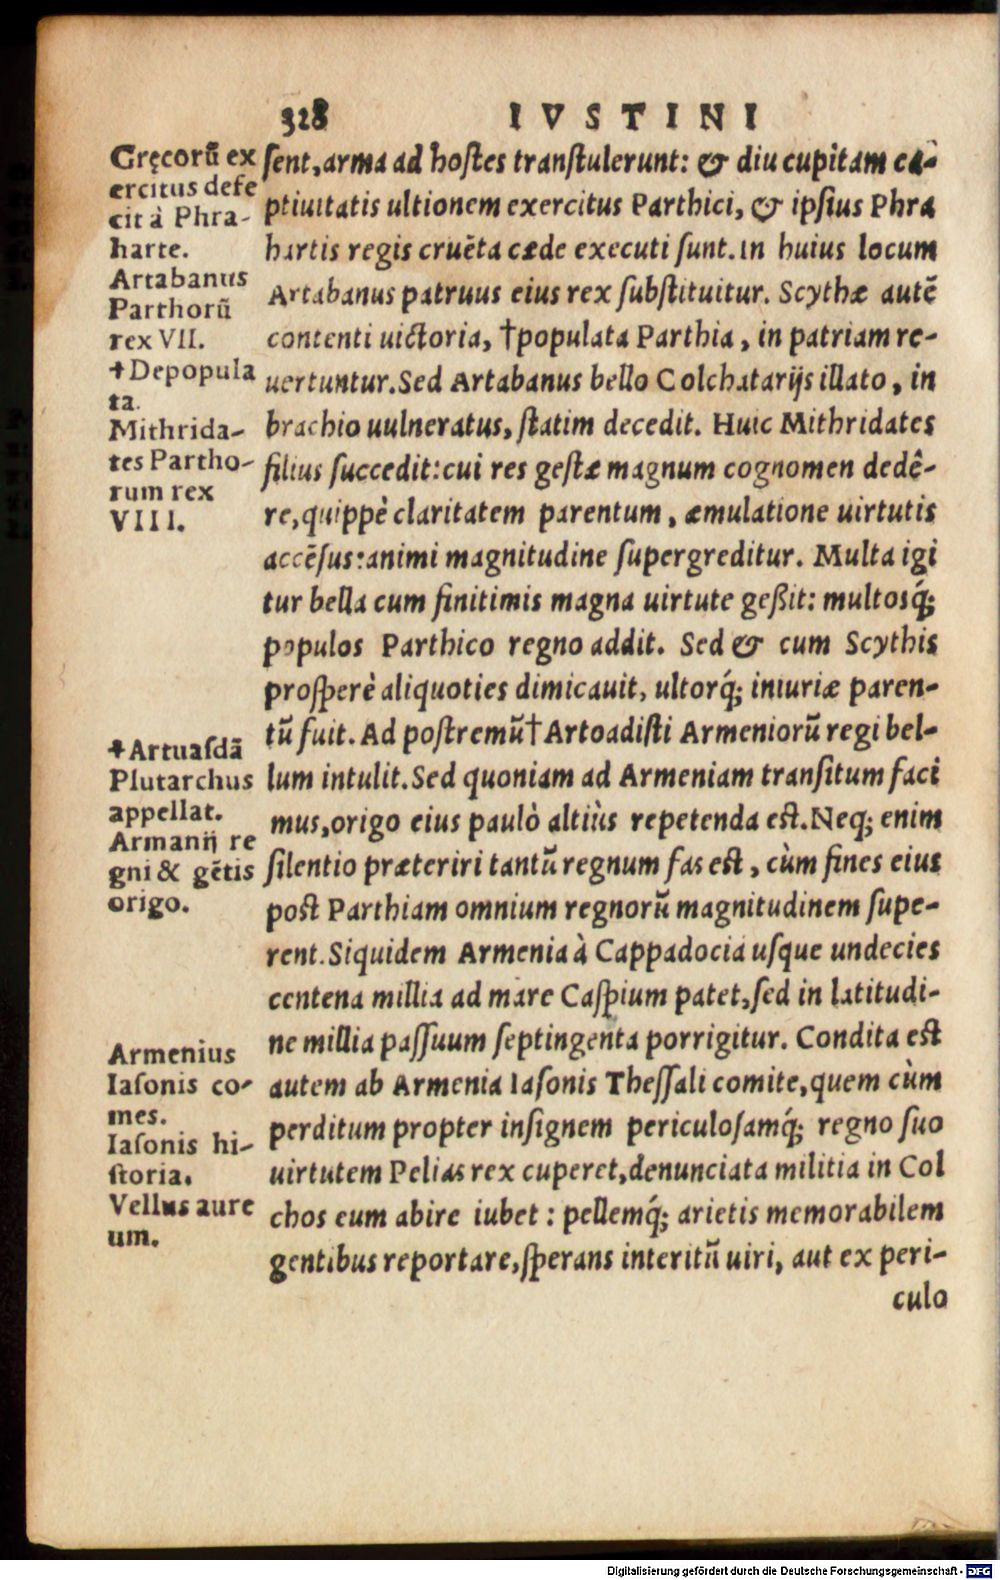 328 IVSTINI
Gręcorũ ex
ercitus defe
cit à Phra-
harte.
Artabanus
Parthorũ
rex VII.
✝Depopula
ta.
Mithrida-
tes Partho-
rum rex
VIII.
✝Artuasdã
Plutarchus
appellat.
Armanij re
gni & gẽtis
origo.
Armenius
Iasonis co-
mes.
Iasonis hi-
storia.
Vellus aure
um.
sent, arma ad hostes transtulerunt: & diu cupitam ca-
ptiuitatis ultionem exercitus Parthici, & ipsius Phra
hartis regis cruẽta cæde executi sunt. In huius locum
Artabanus patruus eius rex substituitur. Scythæ autẽ
contenti uictoria, †populata Parthia, in patriam re-
uertuntur. Sed Artabanus bello Colchatarijs illato, in
brachio uulneratus, statim decedit. Huic Mithridates
filius succedit: cui res gestæ magnum cognomen dedê-
re, quippè claritatem parentum, æmulatione uirtutis
accẽsus: animi magnitudine supergreditur. Multa igi
tur bella cum finitimis magna uirtute geßit: multosq́;
populos Parthico regno addit. Sed & cum Scythis
prosperè aliquoties dimicauit, ultorq́; iniuriæ paren-
tũ fuit. Ad postremũ† Artoadisti Armeniorũ regi bel-
lum intulit. Sed quoniam ad Armeniam transitum faci
mus, origo eius paulò altiùs repetenda est. Neq; enim
silentio præteriri tantũ regnum fas est, cùm fines eius
post Parthiam omnium regnorũ magnitudinem supe-
rent. Siquidem Armenia à Cappadocia usque undecies
centena millia ad mare Caspium patet, sed in latitudi-
ne millia passuum septingenta porrigitur. Condita est
autem ab Armenia Iasonis Thessali comite, quem cùm
perditum propter insignem periculosamq́; regno suo
uirtutem Pelias rex cuperet, denunciata militia in Col
chos eum abire iubet: pellemq́; arietis memorabilem
gentibus reportare, sperans interitũ uiri, aut ex peri-
culo
Digitalisierung gefördert durch die Deutsche Forschungsgemeinschaft - DFG